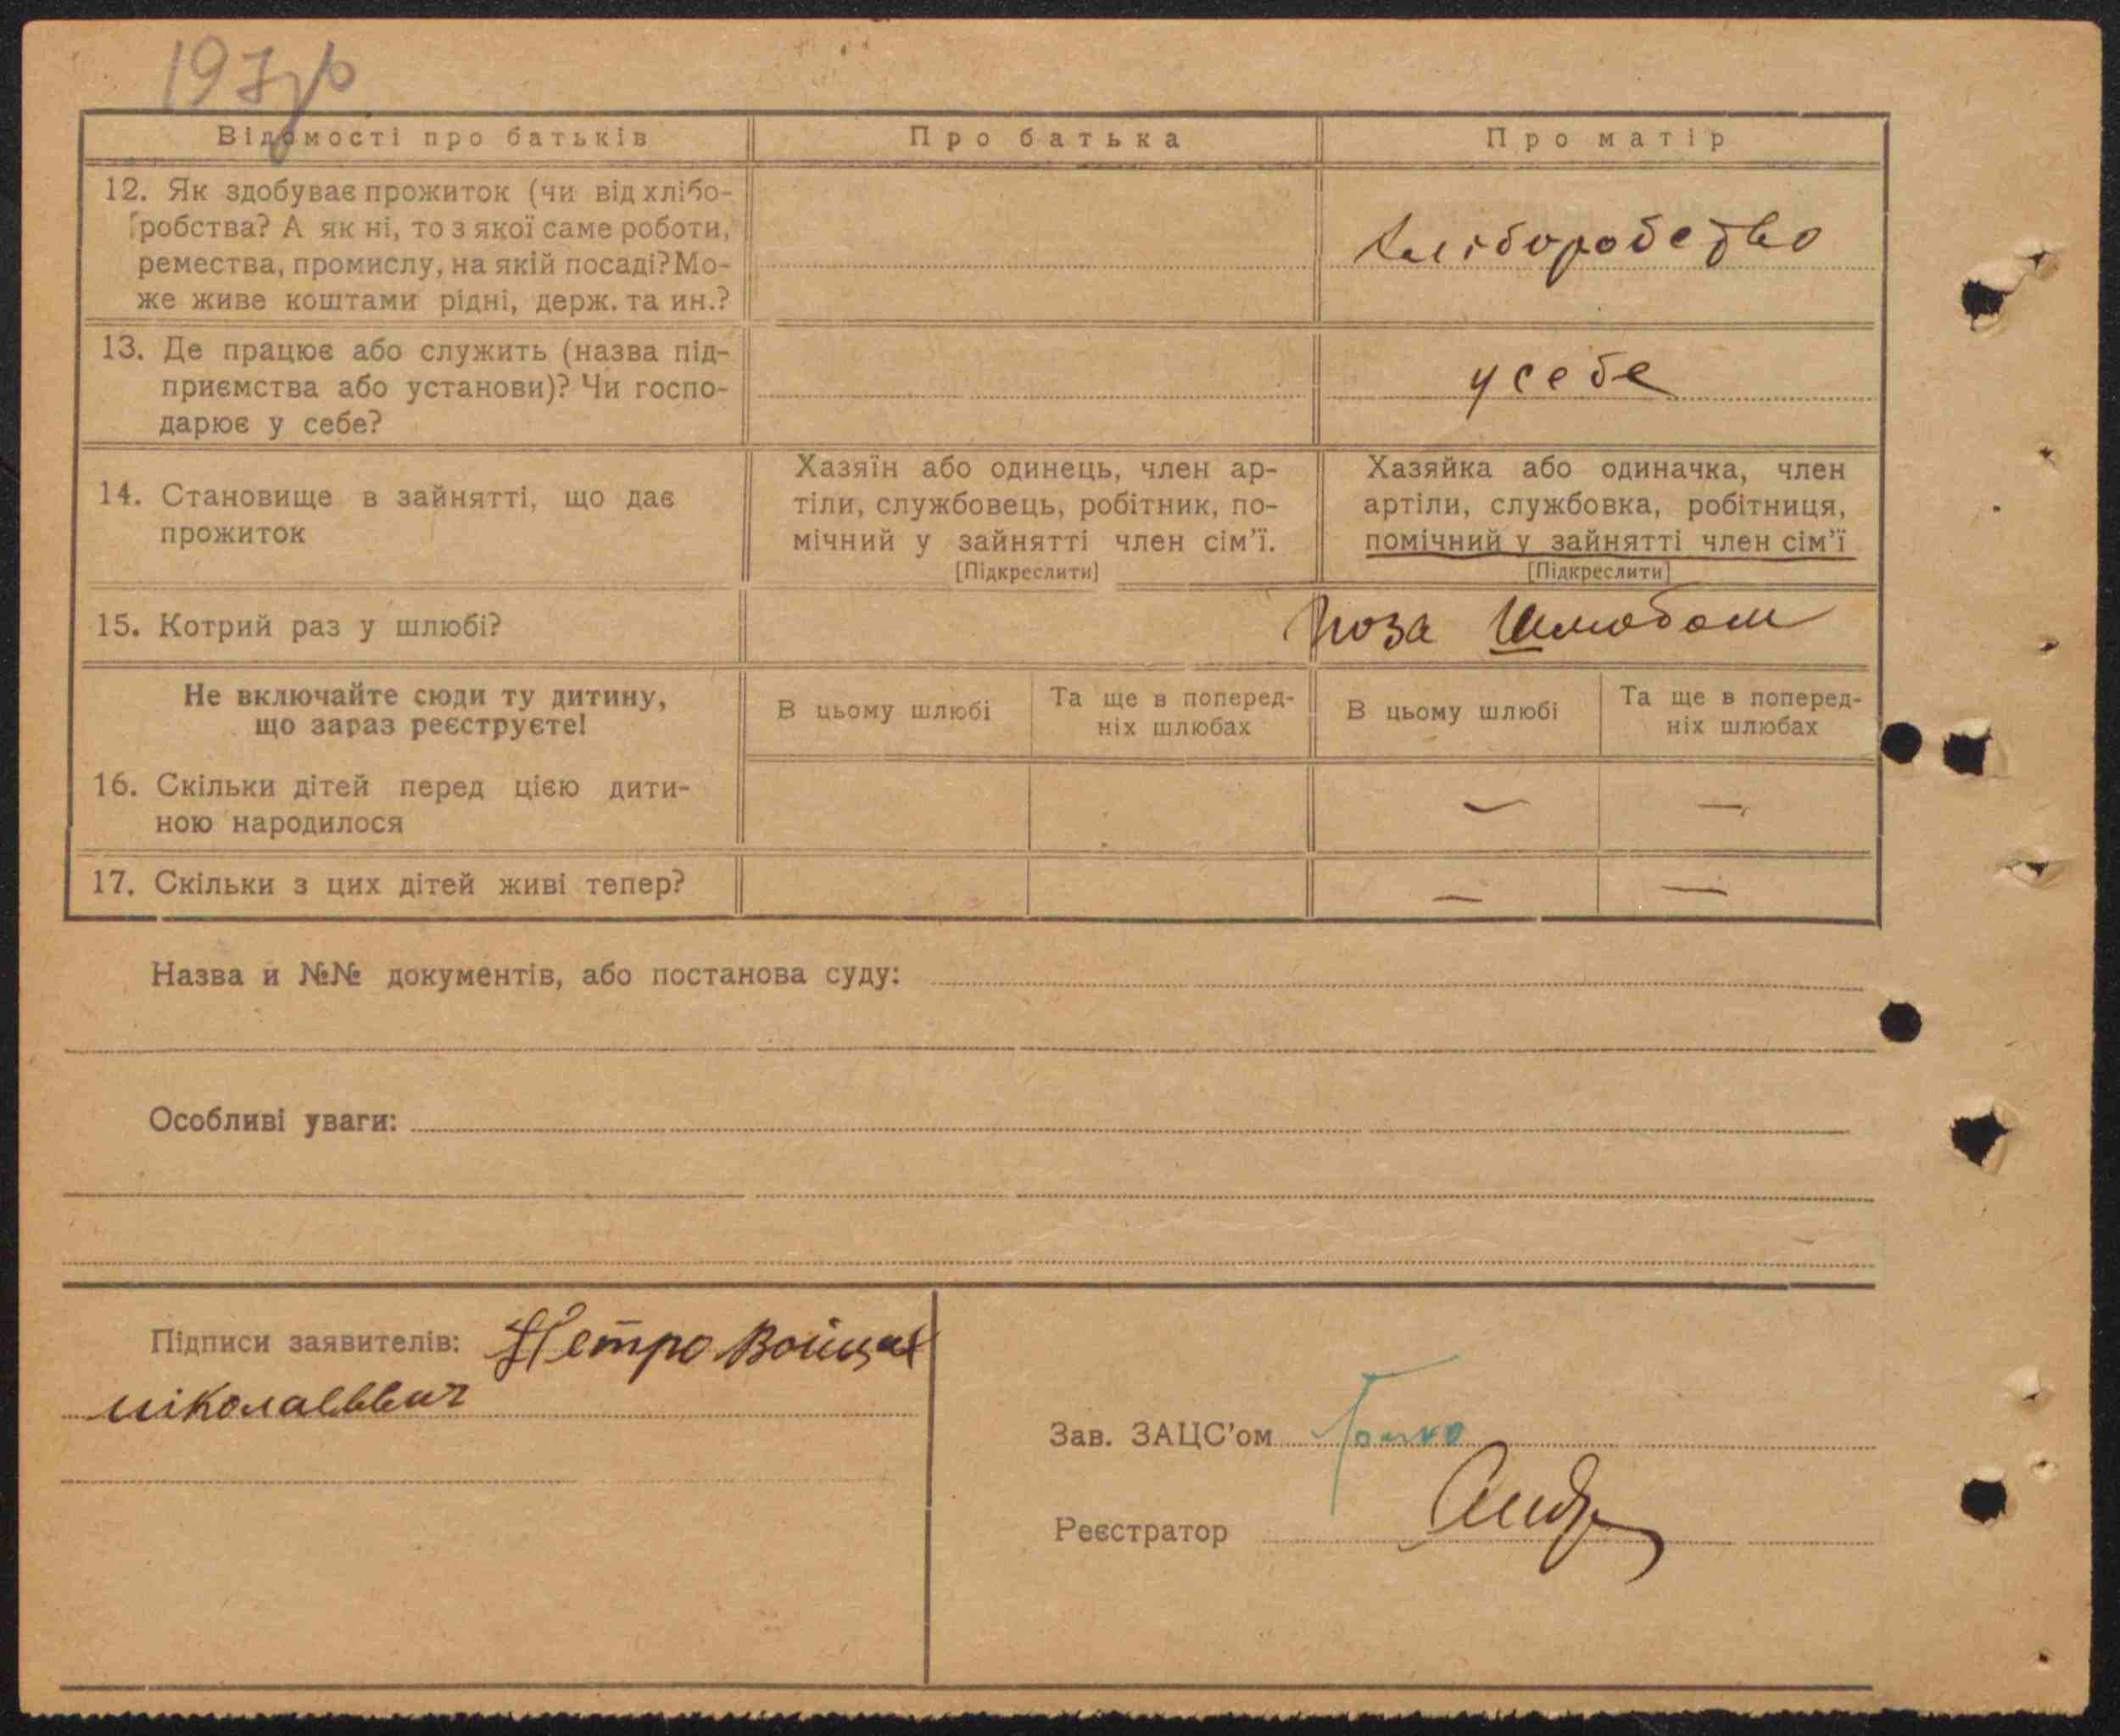 Відомості про батьків
Про батька
Про матір
12. Як здобуває прожиток (чи від хлібо-
робства? А як ні, то з якої саме роботи,
ремества, промислу, на якій посаді? Мо-
же живе коштами рідні, держ. та ин.?
хліборобство
13. Де працює або служить (назва під-
приємства або установи)? Чи госпо-
дарює у себе?
у себе
14. Становище в зайнятті, що дає
прожиток
Хазяїн або одинець, член ар-
тіли, службовець, робітник, по-
мічний у зайнятті член сім'ї.
[Підкреслити]
Хазяйка або одиначка, член
артіли, службовка, робітниця,
помічний у зайнятті член сім'ї
[Підкреслити]
15. Котрий раз у шлюбі?
Поза Шлюбом
Не включайте сюди ту дитину,
що зараз реєструєте!
В цьому шлюбі
Та ще в поперед-
ніх шлюбах
В цьому шлюбі
Та ще в поперед-
ніх шлюбах
16. Скільки дітей перед цією дити-
ною народилося
— —
17. Скільки з цих дітей живі тепер?
— —
Назва и №№ документів, або постанова суду:
Особливі уваги:
Підписи заявителів: Петро
Зав. ЗАЦС'ом
Реєстратор